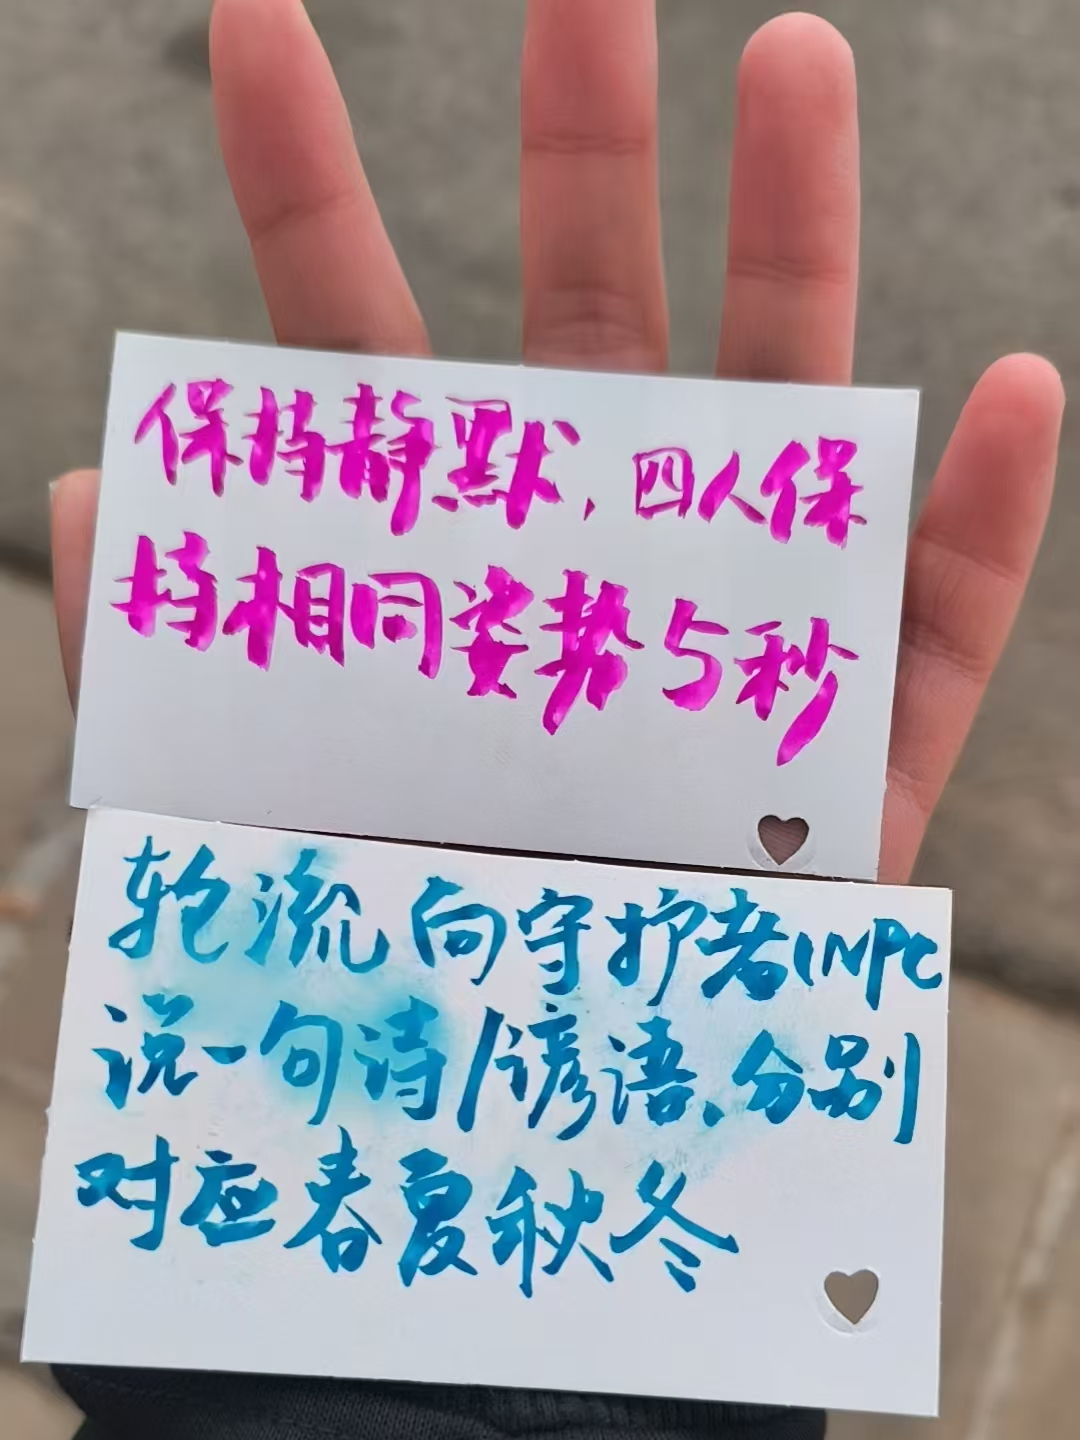 保持静默，四人保
持相同姿势5秒
轮流向守护者(NPC
说一句诗/谚语、分别
对应春夏秋冬